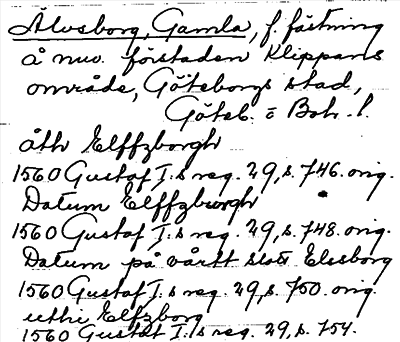 Älvsborg, Gamla, f. fästning
å nuv. förstaden Klippans
område, Göteborgs stad,
Göteb. o Boh. l.
åthr Elffzborgh
1560 Gustaf I:s reg. 29, s. 746. orig.
Datum Elffzburgh
1560 Gustaf I:s reg. 29, s. 748. orig.
Datum på vårtt slott Elssborg
1560 Gustaf I:s reg. 29, s. 750. orig.
uthi Elfzborg
1560 Gustaf I:s reg. 29, s. 754.